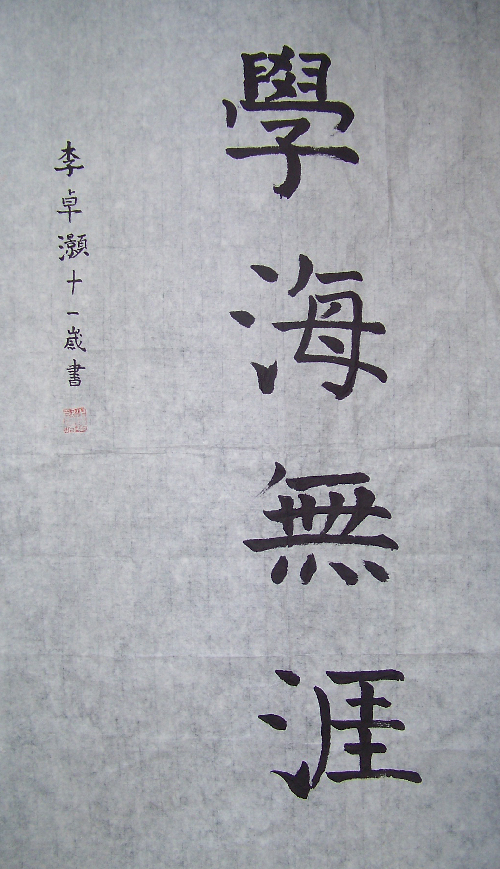 學海無涯
李卓灝十一歲書